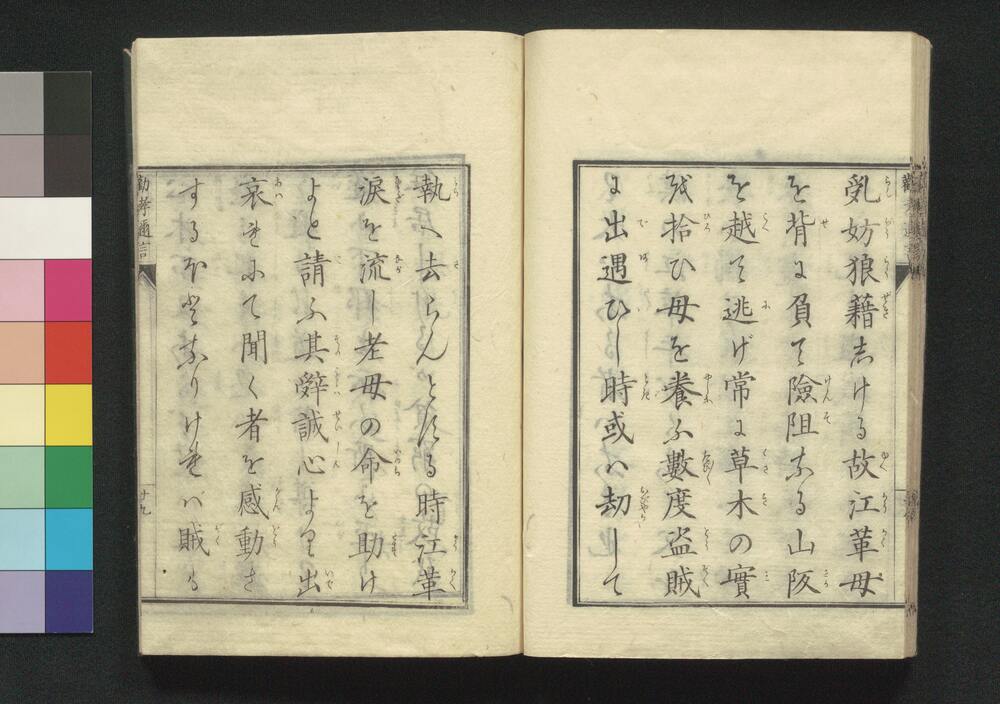 乱妨狼藉志ける故江革母
を背に負て險阻なる山阪
を越て逃げ常に草木の實
或拾ひ母を養ふ數度盗賊
に出遇ひし時或ハ刧して
執へ去らんとする時江革
涙を流し老母の命を助け
よと請ふ其辤誠心より出
哀れにて聞く者を感動さ
するほどなりけれバ賊も
勧孝邇言
十九